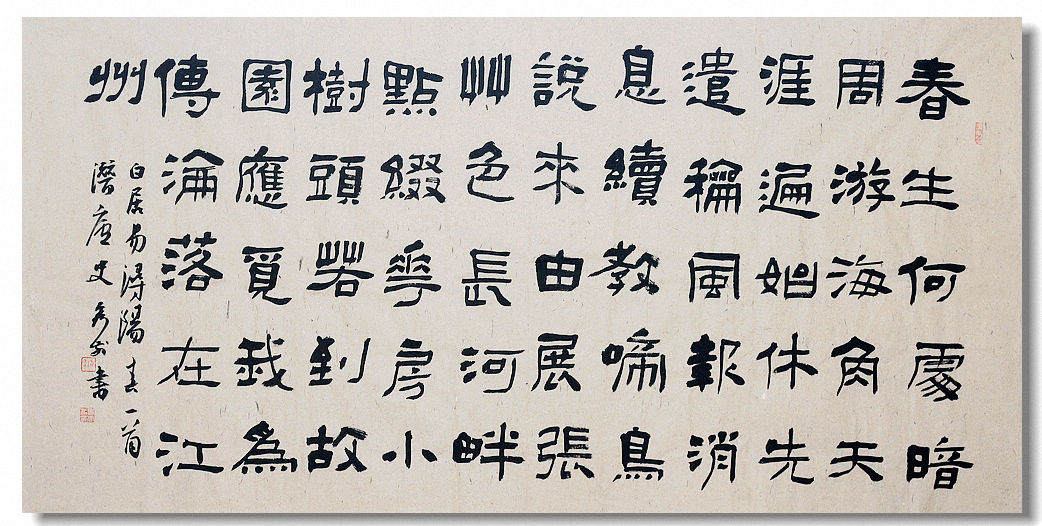 春生何處暗
周游海角天
涯遍始休先
遣龢風報消
息續教啼鳥
說來由展張
艸色長河畔
點綴華房小
樹頭若到故
園應覓我為
傳淪落在江
州
白居易潯陽春一首
史書